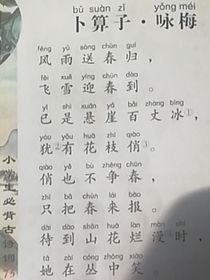 bǔ suàn zǐ yǒng méi
卜算子·咏梅
fēng yǔ sòng chūn guī
风雨送春归，
fēi xuě yíng chūn dào
飞雪迎春到。
yǐ shì xuán yá bǎi zhàng bīng
已是悬崖百丈冰①，
yóu yǒu huā zhī qiào
犹②有花枝俏③。
qiào yě bù zhēng chūn
俏也不争春，
zhǐ bǎ chūn lái bào
只把春来报。
dài dào shān huā làn màn shí
待到山花烂漫时，
tā zài cóng zhōng xiào
她在丛中笑。
小学生必背古诗词75